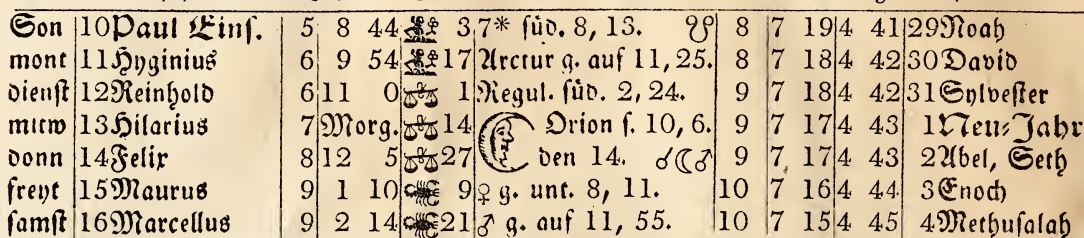 Son 10 Paul Eins. 5 8 44 3 7* süd. 8, 13. ☋ 8 7 19 4 41 29 Noah
mont 11 Hyginius 6 9 54 17 Arctur g. auf 11, 25. 8 7 18 4 42 30 David
dienst 12 Reinhold 6 11 0 ♎ 1 Regul. süd. 2, 24. 9 7 18 4 42 31 Sylvester
mitw 13 Hilarius 7 Morg. ♎ 14 Orion s. 10, 6. 9 7 17 4 43 1 Neu-Jahr
donn 14 Felix 8 12 5 ♎ 27 den 14. ☌☾♂ 9 7 17 4 43 2 Abel, Seth
freyt 15 Maurus 9 1 10 9 ♀ g. unt. 8, 11. 10 7 16 4 44 3 Enoch
samst 16 Marcellus 9 2 14 21 ♂ g. auf 11, 55. 10 7 15 4 45 4 Methusalah